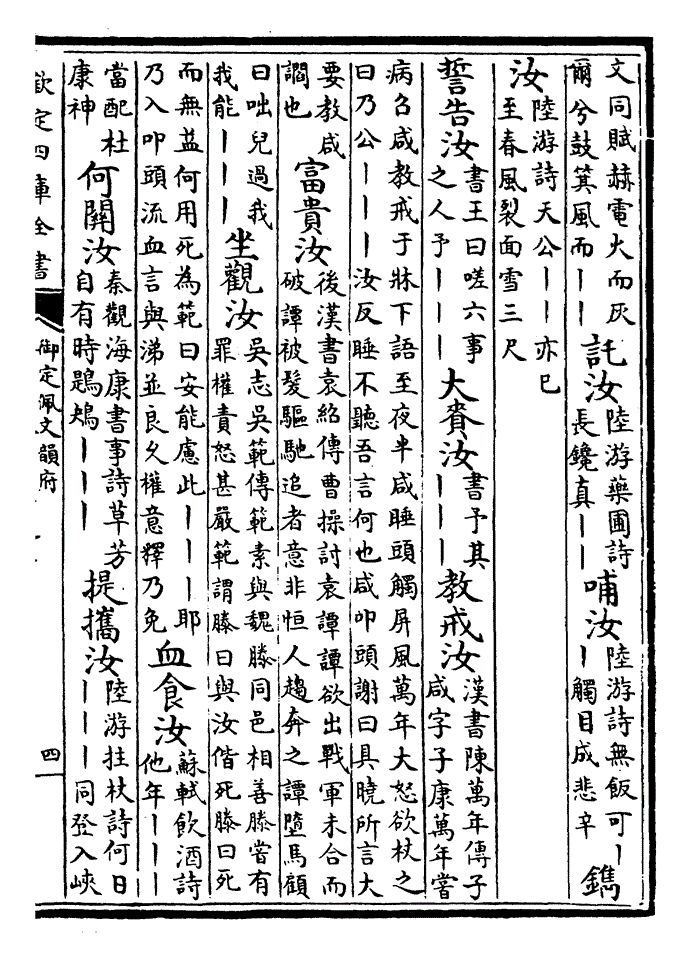 文同賦赫電火而灰
爾兮鼓箕風而｜｜
託汝
陸游藥圃詩
長鑱真｜｜
哺汝
陸游詩無飯可｜
｜觸目成悲辛
鐫
汝
陸游詩天公｜｜亦已
至春風裂面雪三尺
誓告汝
書王曰嗟六事
之人予｜｜｜
大賚汝
書予其
｜｜｜
教戒汝
漢書陳萬年傳子
咸字子康萬年嘗
病召咸教戒于牀下語至夜半咸睡頭觸屏風萬年大怒欲杖之
曰乃公｜｜｜汝反睡不聽吾言何也咸叩頭謝曰具曉所言大
要教咸
讇也
富貴汝
後漢書袁紹傳曹操討袁譚譚欲出戰軍未合而
破譚被髮驅馳追者意非恒人趨奔之譚墮馬顧
曰咄兒過我
我能｜｜｜
坐觀汝
吳志吳範傳範素與魏滕同邑相善滕嘗有
罪權責怒甚嚴範謂滕曰與汝偕死滕曰死
而無益何用死為範曰安能慮此｜｜｜耶
乃入叩頭流血言與涕並良久權意釋乃免
血食汝
蘇軾飲酒詩
他年｜｜｜
當配杜
康神
何關汝
秦觀海康書事詩草芳
自有時鶗鴂｜｜｜
提攜汝
陸游拄杖詩何日
｜｜｜同登入峽
欽定四庫全書
御定佩文韻府
四